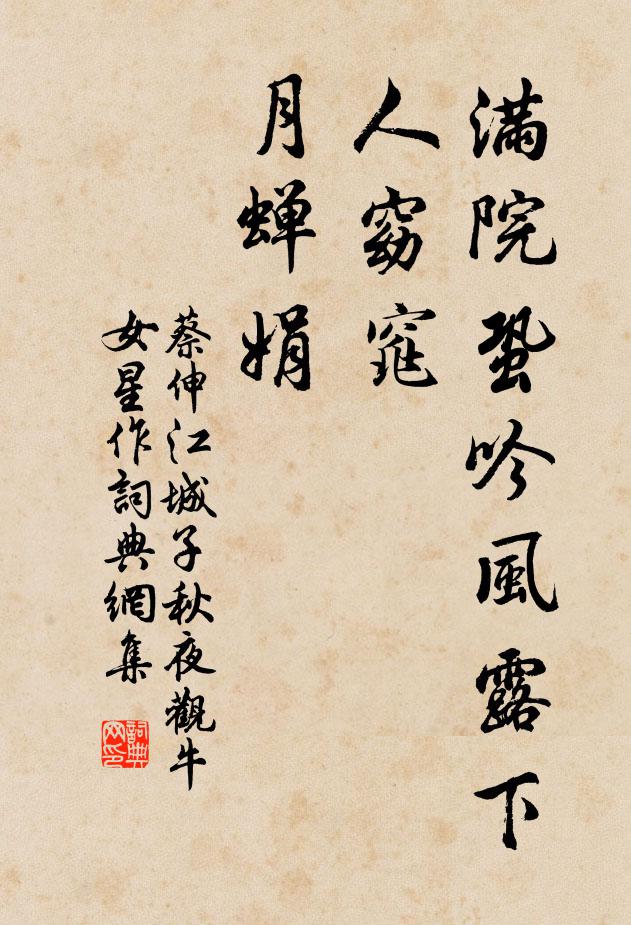 滿院蛩吟風露下
人窈窕
月蟬娟
蔡伸江城子秋夜觀牛
女星作詞典網集
詞典
网印